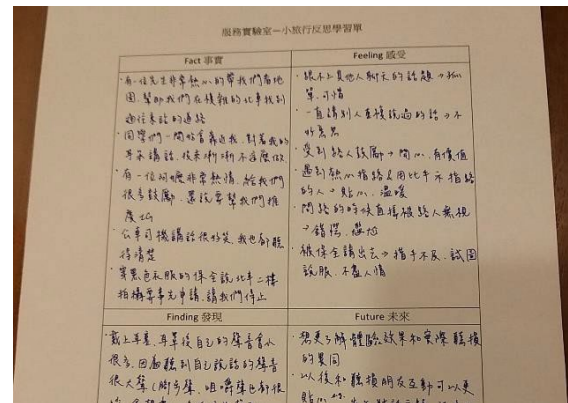 服務實驗室－小旅行反思學習單
Fact 事實
・有一位先生非常熱心的帶我們看地
圖,幫助我們在複雜的北車找到
通往東話的道路
・同學們一開始會靠近我,對著我的
耳朵講話,後來漸漸不這麼做
・有一位阿嬤非常熱情,給我們
很多鼓勵,還說要幫我們推
廣
・公車司機講話很好笑,我也都聽
得清楚
・穿黑色衣服的保全說北車二樓
拍攝要事先申請,請我們停止
Feeling 感受
・跟不上其他人聊天的話題→孤
單、可惜
・一直請別人重複說過的話→不
好意思
・受到路人鼓勵→開心、有價值
・遇到熱心指路及用比手示指路
的人→貼心、溫暖
・問路的時候直接被路人無視
→錯愕、尷尬
・被保全請出去→措手不及、試圖
說服、不盡人情
Finding 發現
・戴上耳塞、耳罩後自己的聲音會小
很多,因為聽到自己說話的聲音
很大聲(腳步聲、咀嚼聲也都很
Future 未來
・想更了解體驗效果和實際聽損
的異同
・以後和聽損朋友互動可以更
貼心